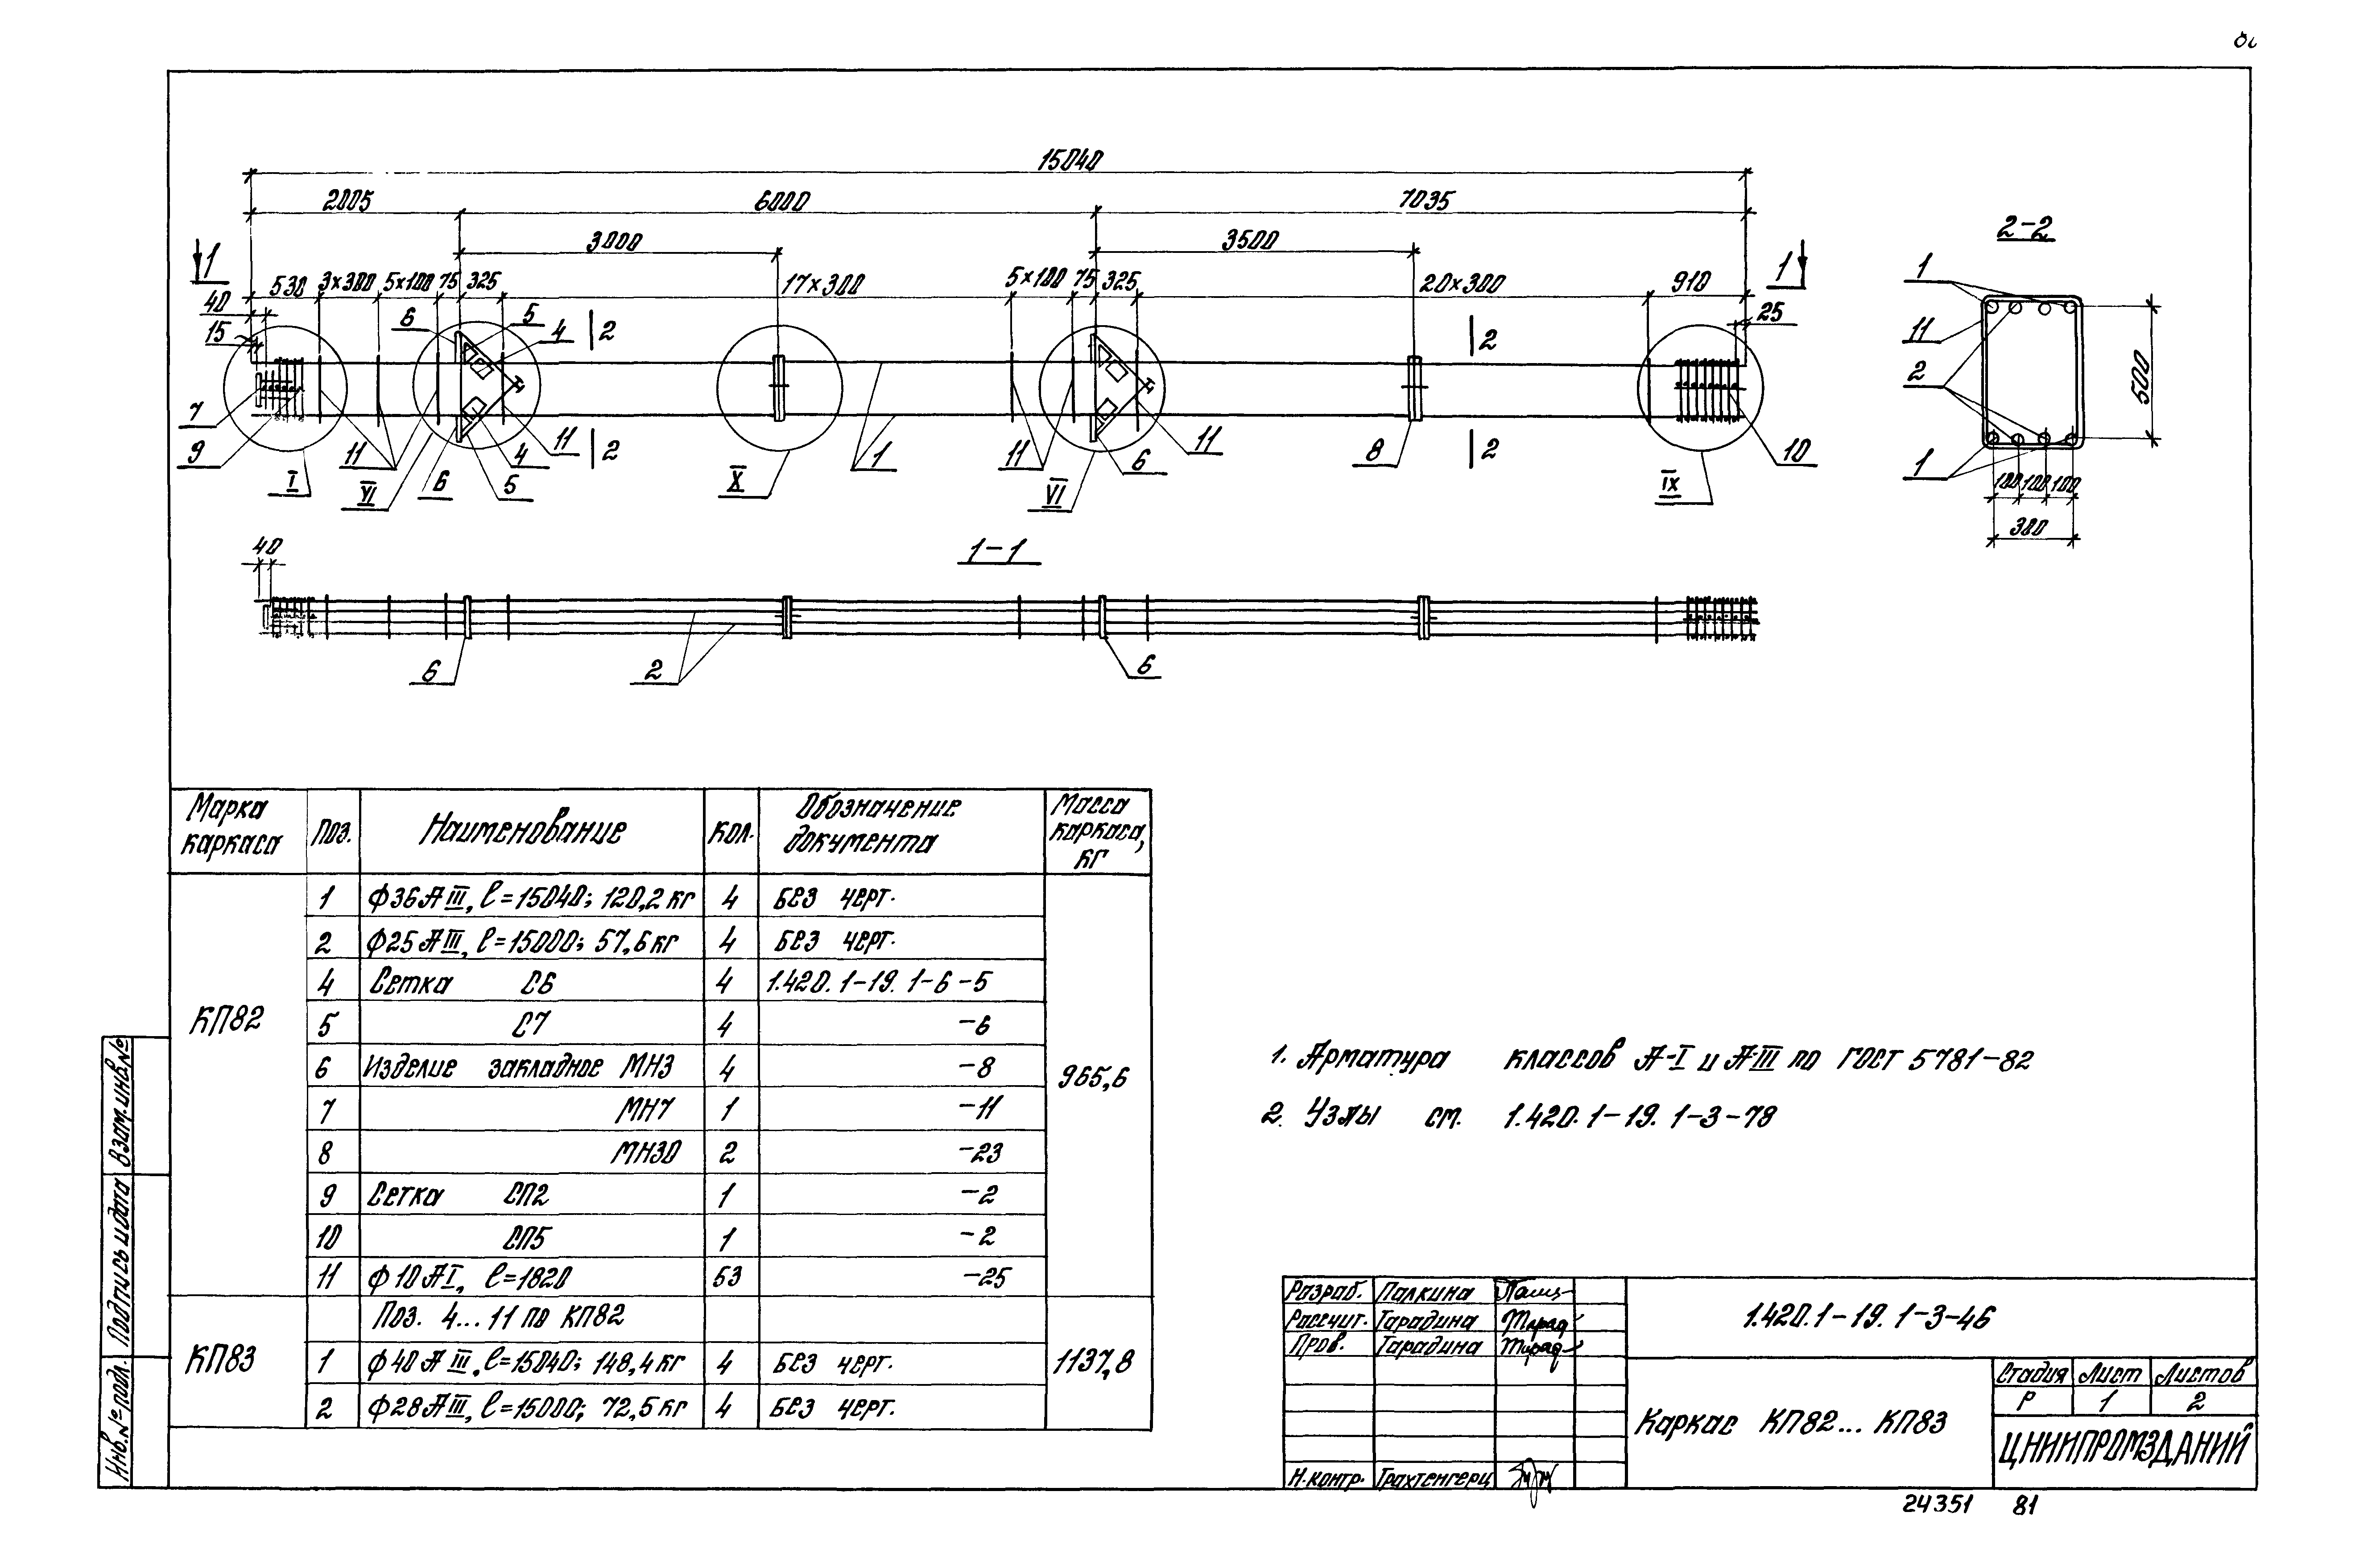 15040
2005 6000 7035
3000 3500
530 3×300 5×100 75 325 17×300 5×100 75 325 20×300 910
1 1
40
15
25
6 5 4 2 2
7 9 11 6 5 4 11 2 1 11 6 11 8 2 10
I VI X VI IX
2-2
1
11
2
1
500
100 100 100
300
1-1
40
6 2 6
Марка каркаса Поз. Наименование Кол. Обозначение документа Масса каркаса, кг
КП82 965,6
1 ф36АIII, ℓ=15040; 120,2 кг 4 Без черт.
2 ф25АIII, ℓ=15000; 57,6 кг 4 Без черт.
4 Сетка С6 4 1.420.1-19.1-6-5
5 С7 4 -6
6 Изделие закладное МН3 4 -8
7 МН7 1 -11
8 МН30 2 -23
9 Сетка СП2 1 -2
10 СП5 1 -2
11 ф10АI, ℓ=1820 53 -25
КП83 1137,8
Поз. 4...11 по КП82
1 ф40АIII, ℓ=15040; 148,4 кг 4 Без черт.
2 ф28АIII, ℓ=15000; 72,5 кг 4 Без черт.
1. Арматура классов А-I и А-III по ГОСТ 5781-82
2. Узлы см. 1.420.1-19.1-3-78
Взам.инв.№
Подпись и дата
Инв.№ подл.
Разраб. Палкина
Рассчит. Тарадина
Пров. Тарадина
Н.контр. Трахтенгерц
1.420.1-19.1-3-46
Каркас КП82...КП83
Стадия Лист Листов
Р 1 2
ЦНИИПРОМЗДАНИЙ
24351 81